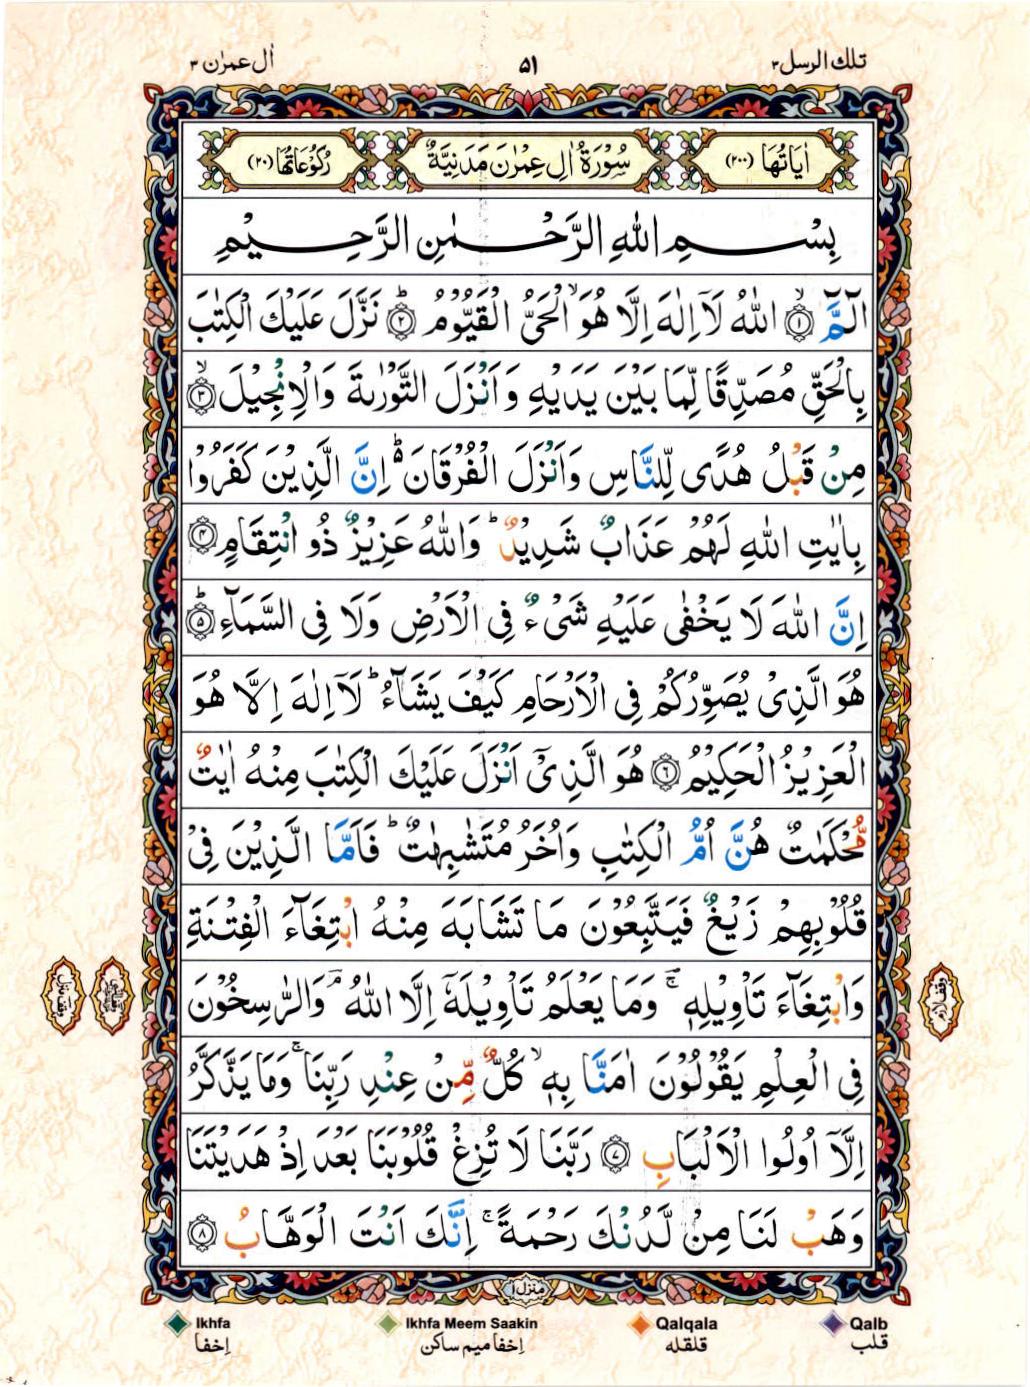 تلك الرسل ٣
٥١
اٰل عمرٰن ٣
اٰيَاتُهَا (٢٠٠)
سُوْرَةُ اٰلِ عِمْرٰنَ مَدَنِيَّةٌ
رُكُوْعَاتُهَا (٢٠)
بِسْمِ اللهِ الرَّحْمٰنِ الرَّحِيْمِ
الٓمَّٓ ۙ﴿١﴾ اللهُ لَآ اِلٰهَ اِلَّا هُوَ ۙ الْحَيُّ الْقَيُّوْمُ ؕ﴿٢﴾ نَزَّلَ عَلَيْكَ الْكِتٰبَ
بِالْحَقِّ مُصَدِّقًا لِّمَا بَيْنَ يَدَيْهِ وَاَنْزَلَ التَّوْرٰىةَ وَالْاِنْجِيْلَ ۙ﴿٣﴾
مِنْ قَبْلُ هُدًى لِّلنَّاسِ وَاَنْزَلَ الْفُرْقَانَ ؕ۬ اِنَّ الَّذِيْنَ كَفَرُوْا
بِاٰيٰتِ اللهِ لَهُمْ عَذَابٌ شَدِيْدٌ ؕ وَاللهُ عَزِيْزٌ ذُو انْتِقَامٍ ﴿٤﴾
اِنَّ اللهَ لَا يَخْفٰى عَلَيْهِ شَيْءٌ فِى الْاَرْضِ وَلَا فِى السَّمَآءِ ؕ﴿٥﴾
هُوَ الَّذِىْ يُصَوِّرُكُمْ فِى الْاَرْحَامِ كَيْفَ يَشَآءُ ؕ لَآ اِلٰهَ اِلَّا هُوَ
الْعَزِيْزُ الْحَكِيْمُ ﴿٦﴾ هُوَ الَّذِىْٓ اَنْزَلَ عَلَيْكَ الْكِتٰبَ مِنْهُ اٰيٰتٌ
مُّحْكَمٰتٌ هُنَّ اُمُّ الْكِتٰبِ وَاُخَرُ مُتَشٰبِهٰتٌ ؕ فَاَمَّا الَّذِيْنَ فِىْ
قُلُوْبِهِمْ زَيْغٌ فَيَتَّبِعُوْنَ مَا تَشَابَهَ مِنْهُ ابْتِغَآءَ الْفِتْنَةِ
وَابْتِغَآءَ تَاْوِيْلِهٖ ۚ وَمَا يَعْلَمُ تَاْوِيْلَهٗٓ اِلَّا اللهُ ۘ وَالرّٰسِخُوْنَ
فِى الْعِلْمِ يَقُوْلُوْنَ اٰمَنَّا بِهٖ ۙ كُلٌّ مِّنْ عِنْدِ رَبِّنَا ۚ وَمَا يَذَّكَّرُ
اِلَّآ اُولُوا الْاَلْبَابِ ﴿٧﴾ رَبَّنَا لَا تُزِغْ قُلُوْبَنَا بَعْدَ اِذْ هَدَيْتَنَا
وَهَبْ لَنَا مِنْ لَّدُنْكَ رَحْمَةً ۚ اِنَّكَ اَنْتَ الْوَهَّابُ ﴿٨﴾
وقف لازم
منزل ١
Ikhfa
اِخفا
Ikhfa Meem Saakin
اِخفا ميم ساكن
Qalqala
قلقله
Qalb
قلب